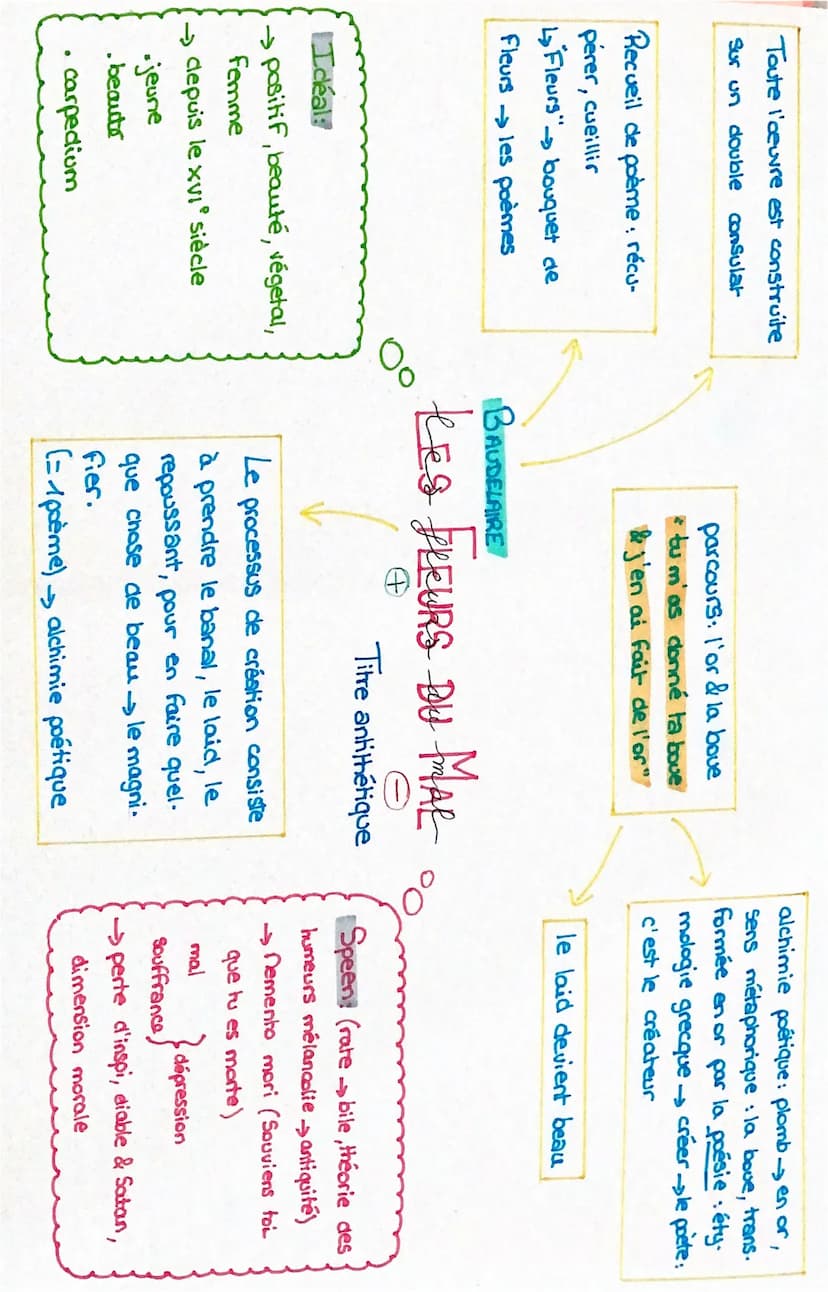 Toute l'œuvre est construite
sur un double consulat
Recueil de poème : récu-
pérer, cueillir
↳ "Fleurs" → bouquet de
fleurs → les poèmes
parcours: l'or & la boue
"tu m'as donné ta boue
& j'en ai fait de l'or"
alchimie poétique : plomb → en or,
sens métaphorique : la boue, trans-
formée en or par la poésie : éty-
mologie grecque → créer → le poète :
c'est le créateur
le laid devient beau
BAUDELAIRE
LES FLEURS DU MAL
Les fleurs du mal
+
-
Titre antithétique
Idéal:
→ positif, beauté, végétal,
femme
→ depuis le XVIe siècle
. jeune
. beauté
. carpedium
Le processus de création consiste
à prendre le banal, le laid, le
repoussant, pour en faire quel-
que chose de beau → le magni-
fier.
(= 1 poème) → alchimie poétique
Speen: (rate → bile, théorie des
humeurs mélancolie → antiquité)
→ Memento mori (Souviens toi
que tu es morte)
mal
souffrance } dépression
→ perte d'inspi, diable & Satan,
dimension morale